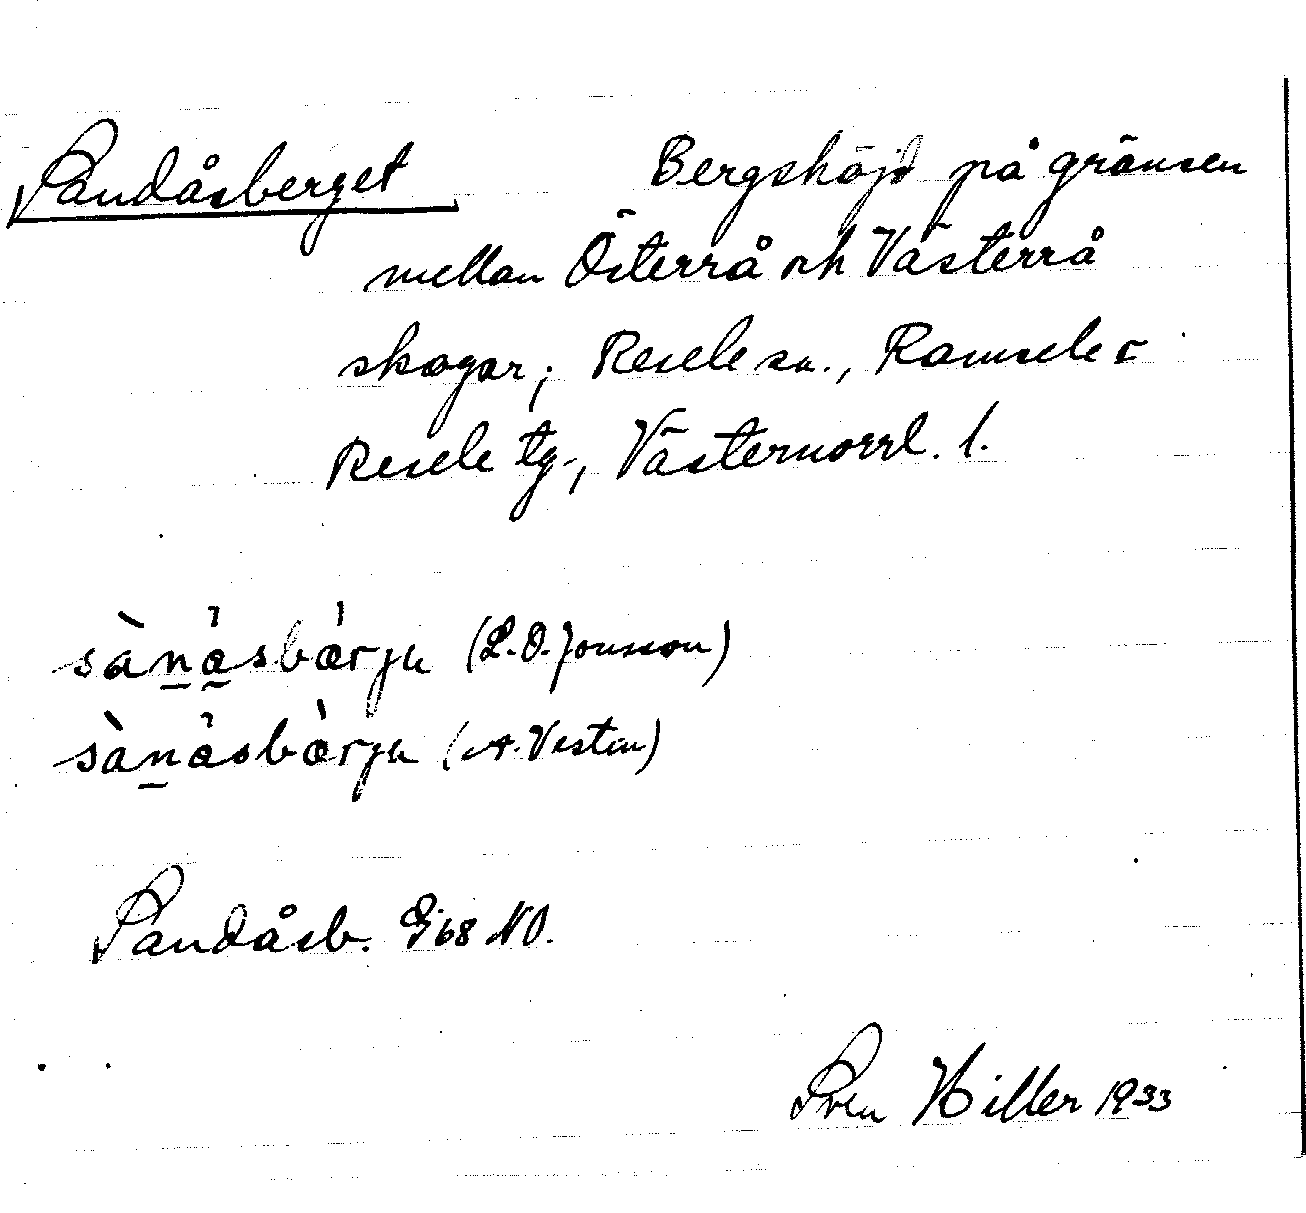 Sandåsberget Bergshöjd på gränsen
mellan Österrå och Västerrå
skogar; Resele sn., Ramsele o
Resele tg., Västernorrl. l.
sànåsbærju (L.O. Jonsson)
sànåsbærju (A. Vestin)
Sandåsb. Gj 68 NO.
Sven Hiller 1933